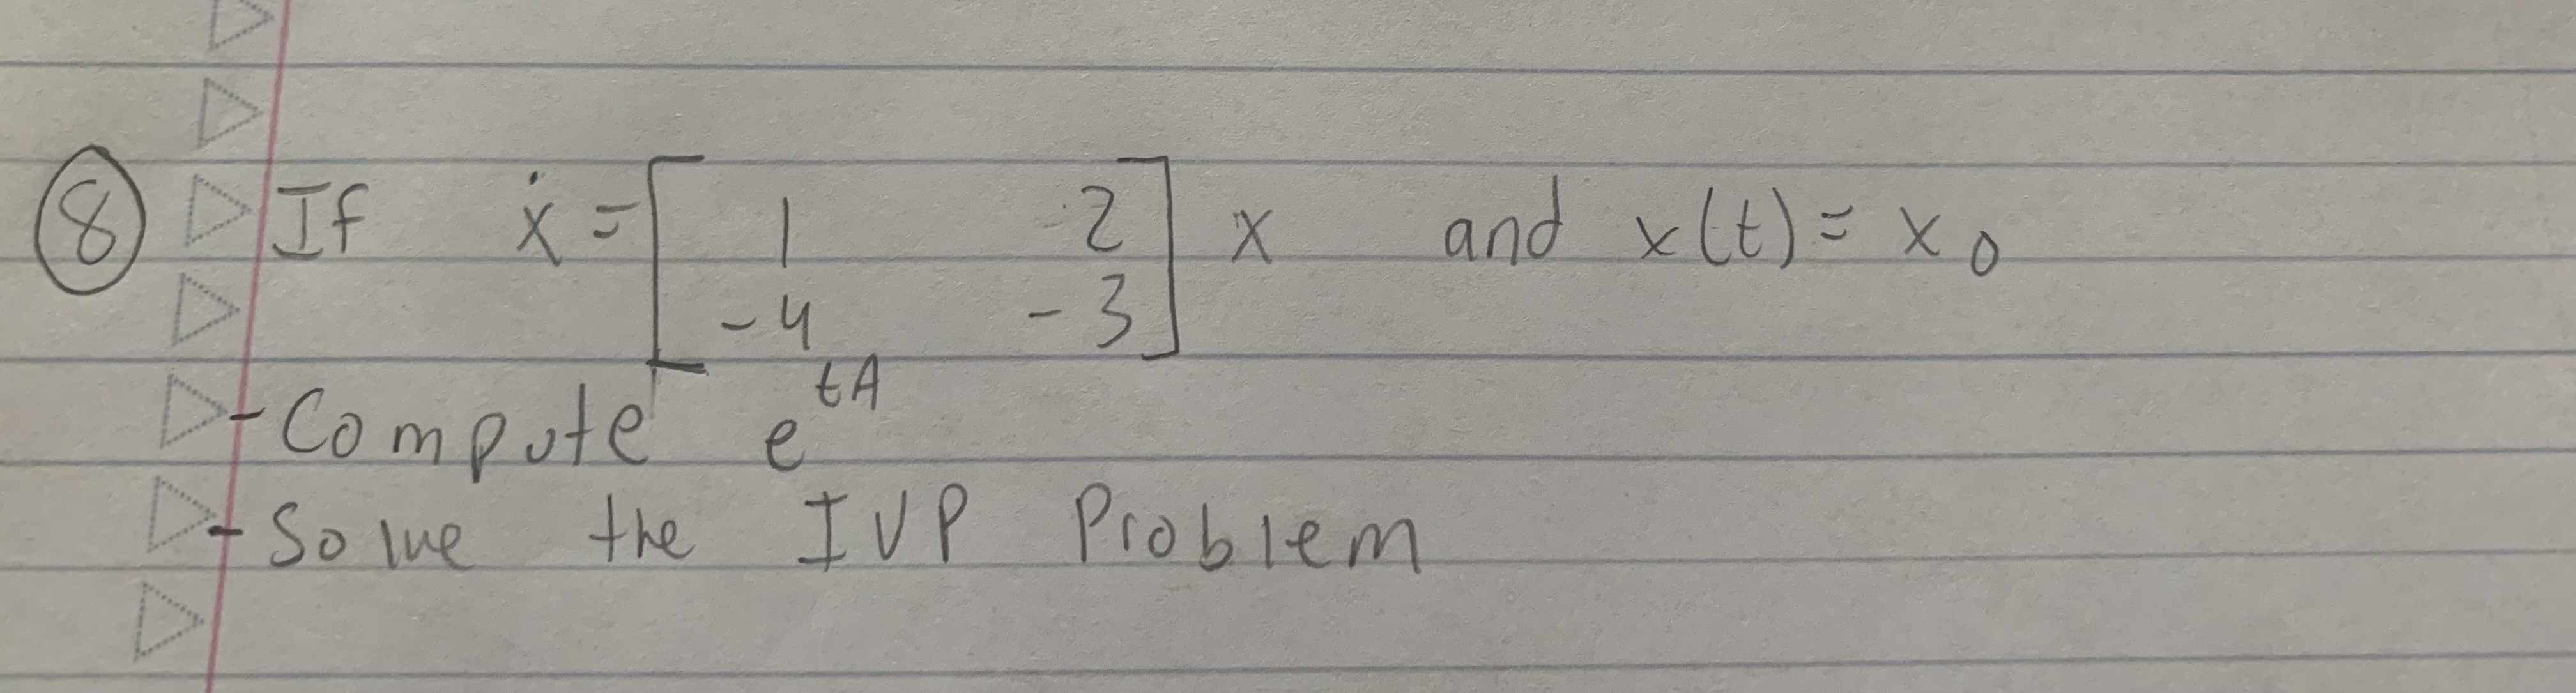 ⑧ If ẋ = [ 1 -2 ] x and x(t) = x₀
[ -4 -3 ]
- Compute e^{tA}
- Solve the IVP Problem